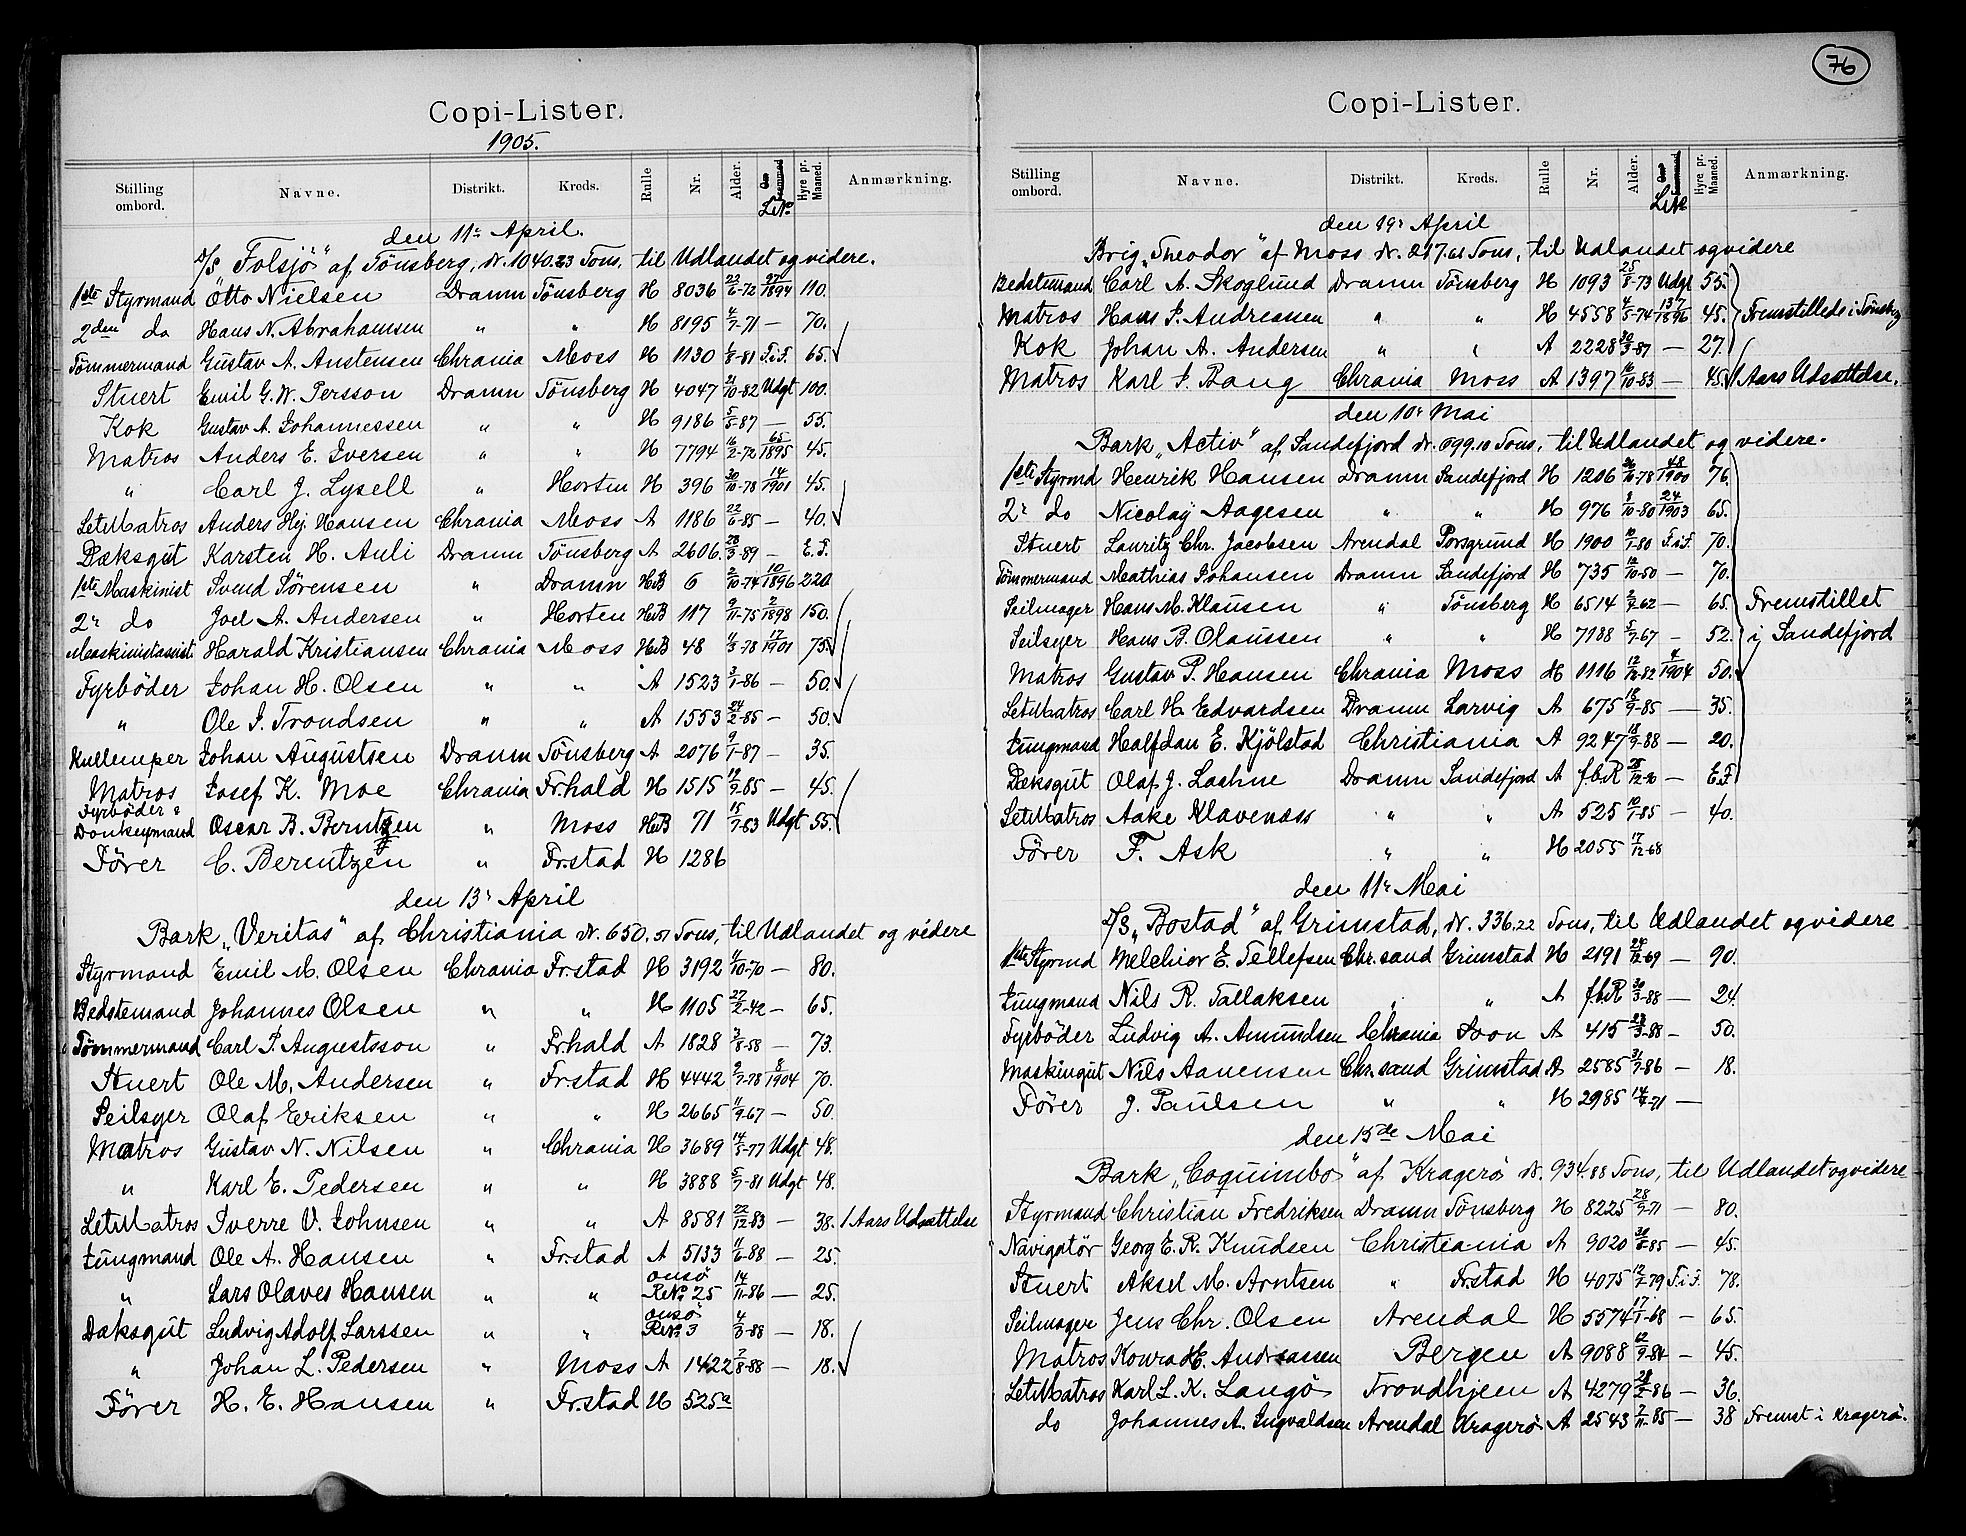 Copi-Lister.
1905.
Stilling ombord. Navne. Distrikt. Kreds. Rulle Nr. Alder. Hyre pr. Maaned. Anmærkning.
den 11te April.
S/S "Folsjö" af Tönsberg, dr. 1040.23 Tons, til Udlandet og videre.
1ste Styrmand Otto Nielsen Dramn Tönsberg H 8036 22/6-72 97/1894 110.
2den do Hans N. Abrahamsen " " H 8195 4/7-71 — 70.
Tömmermand Gustav A. Anstensen Chrania Moss H 1130 1/8-81 F.i.F. 65.
Stuert Emil G. W. Persson Dramn Tönsberg H 4047 21/10-82 Udgt 100.
Kok Gustav A. Johannessen " " H 9186 5/5-87 — 55.
Matros Anders E. Iversen " " H 7794 16/2-72 65/1895 45.
" Carl J. Lysell " Horten H 396 30/10-78 14/1901 45.
Let Matros Anders Hj. Hansen Chrania Moss A 1186 22/6-85 — 40.
Dæksgut Karsten H. Auli Dramn Tönsberg A 2606. 28/3-89 — E.F.
1ste Maskinist Svend Sörensen " Dramn HB 6 2/10-74 10/1896 220
2n do Joel A. Andersen " Horten HB 117 9/11-75 2/1898 150.
Maskinistassist. Harald Kristiansen Chrania Moss HB 48 11/3-78 17/1901 75.
Fyrböder Johan H. Olsen " " A 1523 3/1-86 — 50.
" Ole J. Trondsen " " A 1553 24/2-85 — 50.
Kullemper Johan Augustsen Dramn Tönsberg A 2076 9/1-87 — 35.
Matros Josef K. Moe Chrania Frhald H 1515 12/9-85 — 45.
Fyrböder & Donkeymand Oscar B. Berntzen " Moss HB 71 15/7-83 Udgt 55.
Förer C. Berentzen " Fr.stad H 1286
den 13n April
Bark "Veritas" af Christiania dr. 650.51 Tons, til Udlandet og videre
Styrmand Emil M. Olsen Chrania Fr.stad H 3192 4/10-70 — 80.
Bedstemand Johannes Olsen " " H 1105 27/2-42 — 65.
Tömmermand Carl P. Augustsson " Frhald A 1828 3/8-58 — 73.
Stuert Ole M. Andersen " Fr.stad H 4442 9/7-78 8/1904 70.
Seilsyer Olaf Eriksen " " H 2665 11/9-67 — 50.
Matros Gustav N. Nilsen " Chrania H 3689 14/5-77 Udgt 48.
" Karl E. Pedersen " " H 3888 5/7-81 Udgt 48.
Let Matros Sverre V. Johnsen " " A 8581 22/12-83 — 38. 1 Aars Udsættelse
Jungmand Ole A. Hansen " Fr.stad A 5133 11/6-88 — 25.
" Lars Olaves Hansen " " Onsö R.No. 25 14/11-86 — 25.
Dæksgut Ludvig Adolf Larssen " " Onsö R.No. 3 4/3-88 — 18.
" Johan L. Pedersen " Moss A 1422 2/8-88 — 18.
Förer H. E. Hansen " Fr.stad H 525a
76
Copi-Lister.
Stilling ombord. Navne. Distrikt. Kreds. Rulle Nr. Alder. Hyre pr. Maaned. Anmærkning.
den 19n April
Brig "Theodor" af Moss dr. 217.61 Tons, til Udlandet og videre
Bedstemand Carl A. Skoglund Dramn Tönsberg H 1093 25/5-73 Udgt 55.
Matros Hans P. Andreasen " " H 4558 4/5-74 137/1896 45. Fremstilledes i Tönsbg
Kok Johan A. Andersen " " A 2228 30/3-87 — 27.
Matros Karl J. Bang Chrania Moss A 1397 16/10-83 — 45. 1 Aars Udsættelse.
den 10n Mai
Bark "Activ" af Sandefjord dr. 699.10 Tons, til Udlandet og videre.
1ste Styrmd Henrik Hansen Dramn Sandefjord H 1206 26/10-78 48/1900 76.
2n do Nicolaj Aagesen " " H 976 8/10-80 24/1903 65.
Stuert Lauritz Chr. Jacobsen Arendal Porsgrund H 1900 10/1-80 F.i.F. 70.
Tömmermand Mathias Johansen Dramn Sandefjord H 735 12/10-50 — 70.
Seilmager Hans M. Klausen " Tönsberg H 6514 2/9-62 — 65. Fremstillet
Seilsyer Hans B. Olaussen " " H 7188 5/7-67 — 52. i Sandefjord
Matros Gustav P. Hansen Chrania Moss H 1116 12/12-82 4/1904 50.
Let Matros Carl H. Edvardsen Dramn Larvig A 675 16/9-85 — 35.
Jungmand Halfdan E. Kjölstad Christiania A 9247 18/9-88 — 20.
Dæksgut Olaf J. Lashne Dramn Sandefjord A f.b.R 25/12-90 — E.F.
Let Matros Aake Klavenæss " " A 525 10/1-85 — 40.
Förer F. Ask " " H 2055 17/12-68
den 11n Mai
S/S "Bostad" af Grimstad, dr. 336.22 Tons, til Udlandet og videre
1ste Styrmd Melchior E. Tellefsen Chr.sand Grimstad H 2191 24/12-69 — 90.
Jungmand Nils R. Tallaksen " " A f.b.R 30/3-88 — 24.
Fyrböder Ludvig A. Amundsen Chrania Soon A 415 23/3-88 — 50.
Maskingut Nils Aanensen Chr.sand Grimstad A 2585 31/7-86 — 18.
Förer J. Paulsen " " H 2985 14/4-71 —
den 15de Mai
Bark "Coquimbo" af Kragerö dr. 934.88 Tons, til Udlandet og videre
Styrmand Christian Fredriksen Dramn Tönsberg H 8225 28/9-71 — 80.
Navigatör Georg E. R. Knudsen Christiania A 9020 26/6-85 — 45.
Stuert Aksel M. Arntsen " Fr.stad H 4075 12/7-79 F.i.F. 78.
Seilmager Jens Chr. Olsen Arendal H 5574 17/1-68 — 65.
Matros Konrad H. Andreassen Bergen A 9088 12/9-84 — 45.
Let Matros Karl L. K. Langö Trondhjem A 4279 28/2-86 — 36.
do Johannes A. Ingvaldsen Arendal Kragerö A 2543 7/11-85 — 38 Fremst i Kragerö.